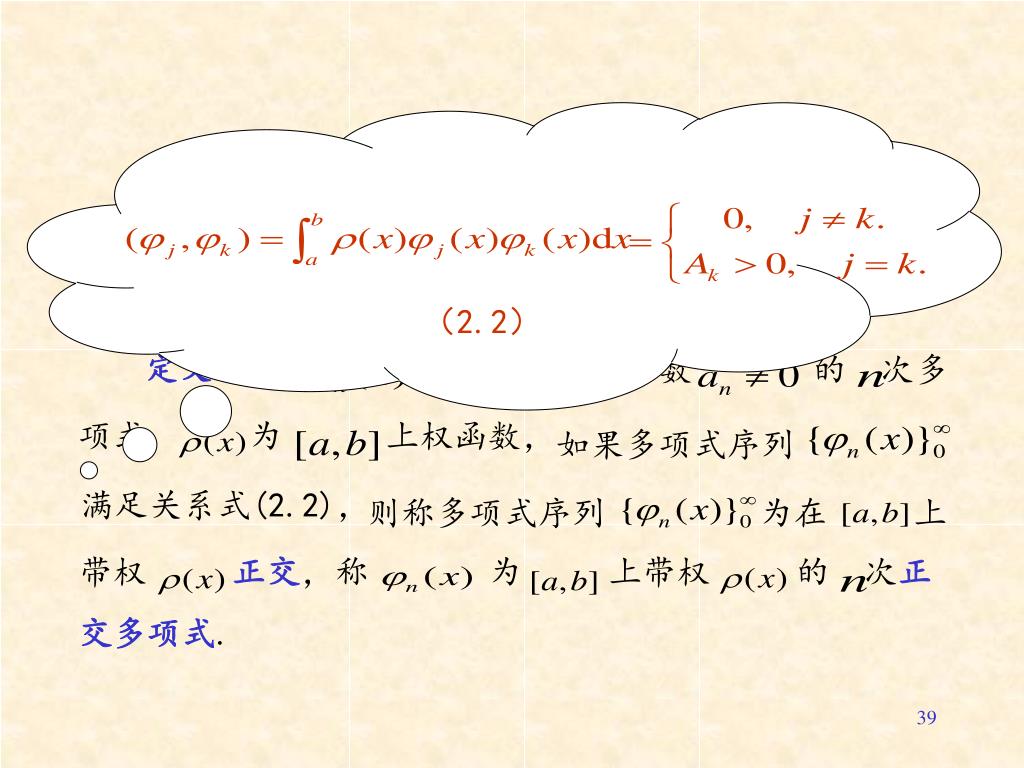 (φⱼ, φₖ) = ∫ₐᵇ ρ(x)φⱼ(x)φₖ(x)dx = { 0, j ≠ k. Aₖ > 0, j = k.
(2.2)
定义 数 aₙ ≠ 0 的 n次多
项式 ρ(x)为 [a,b]上权函数，如果多项式序列 {φₙ(x)}₀^∞
满足关系式(2.2)，则称多项式序列 {φₙ(x)}₀^∞ 为在 [a,b]上
带权 ρ(x)正交，称 φₙ(x) 为 [a,b] 上带权 ρ(x) 的 n次正
交多项式.
39